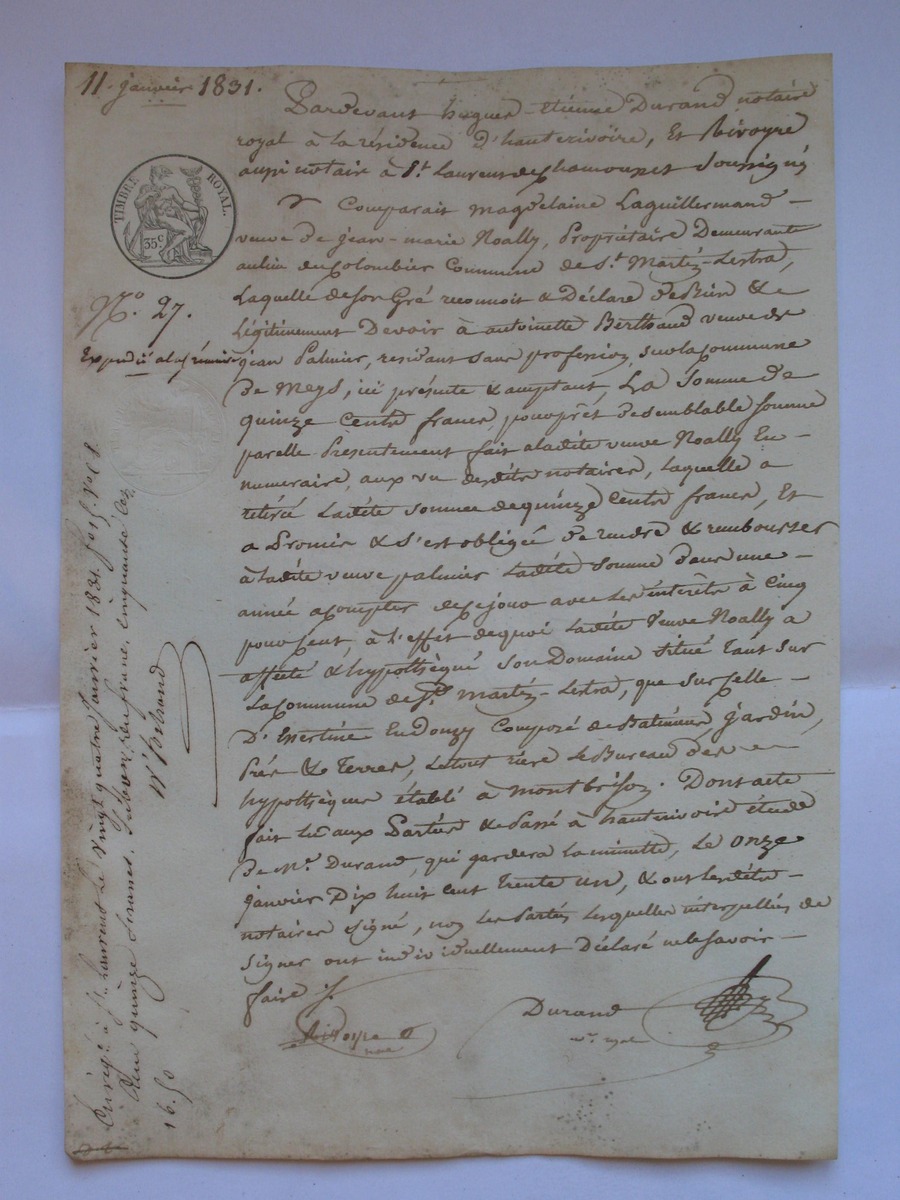 11. janvier 1831.
Pardevant hugues-etienne Durand notaire
royal à la résidence d'hauterivoire, Et Rivoyre
aussi notaire à St. Laurent de Chamousset Soussignés
Comparait magdelaine Laguillermand -
veuve de jean-marie Noally, Propriétaire Demeurante
au lieu du Colombier Commune de St. Martin-Lestra,
Laquelle de son Gré reconnoit & Déclare de Bien & -
Légitimement Devoir à antoinette Berthaud veuve de
jean Palmier, residant sans profession, sur la Commune
De Meys, ici présente & acceptant, La Somme de
quinze Cents francs, pour prêt de semblable somme
pareille Présentement fait à ladite veuve Noally En -
numeraire, aux vu desdits notaires, Laquelle a
retiré Ladite Somme de quinze Cents francs, Et
a Promis & s'est obligée de rendre & rembourser
à ladite veuve palmier Ladite Somme dans une -
année à compter de ce jour avec les intérêts à Cinq
pour Cent, à l'effet de quoi Ladite Veuve Noally a
affecté & hypothéqué Son Domaine Situé Tant Sur
La Commune de St. Martin-Lestra, que sur Celle -
D'Essertine En Donzy Composé de Batimens, jardin,
Prés & Terres, Le tout rière Le Bureau des -
hypothèques établi à montbrison. Dont acte
fait Lu aux Parties & Passé à hauterivoire étude
De Me. Durand, qui gardera la minutte, Le onze
janvier Dix huit cent trente un, & ont lesdits -
notaires signé, non les Parties Lesquelles interpellées de
Signer ont individuellement Déclaré ne le savoir -
faire ./.
Rivoyre
nore
Durand
nre. royal
TIMBRE ROYAL.
35c
No. 27.
Expédié à la créancière
Enregé. à St. Laurent Le Vingt quatre janvier 1831. fo.
Reçu quinze francs. Subvon. un franc cinquante Ces.
16.50